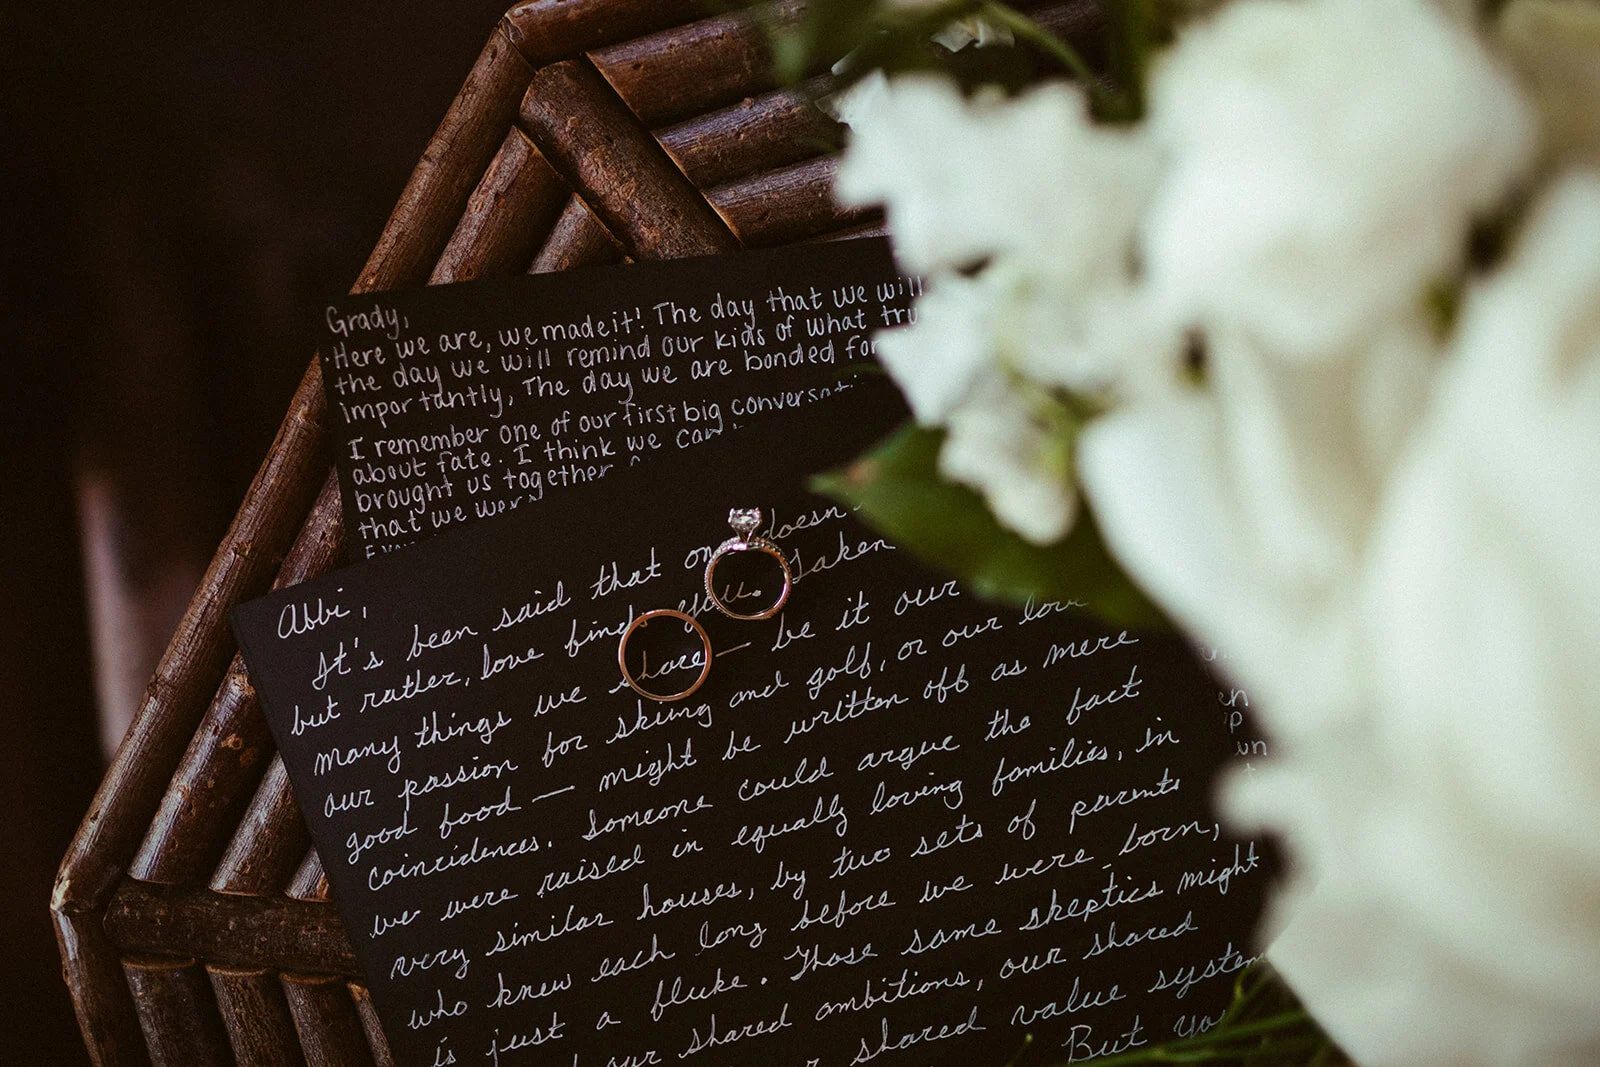 Grady,
Here we are, we made it! The day that we will
the day we will remind our kids of what
importantly, The day we are bonded for
I remember one of our first big
about fate. I think we can
brought us together
that we were
Abbi,
It's been said that one doesn
but rather, love finds you. Taken
many things we share — be it our
our passion for skiing and golf, or our love
good food — might be written off as mere
coincidences. Someone could argue the fact
we were raised in equally loving families, in
very similar houses, by two sets of parents
who knew each long before we were born,
is just a fluke. Those same skeptics might
our shared ambitions, our shared
shared value system
But you